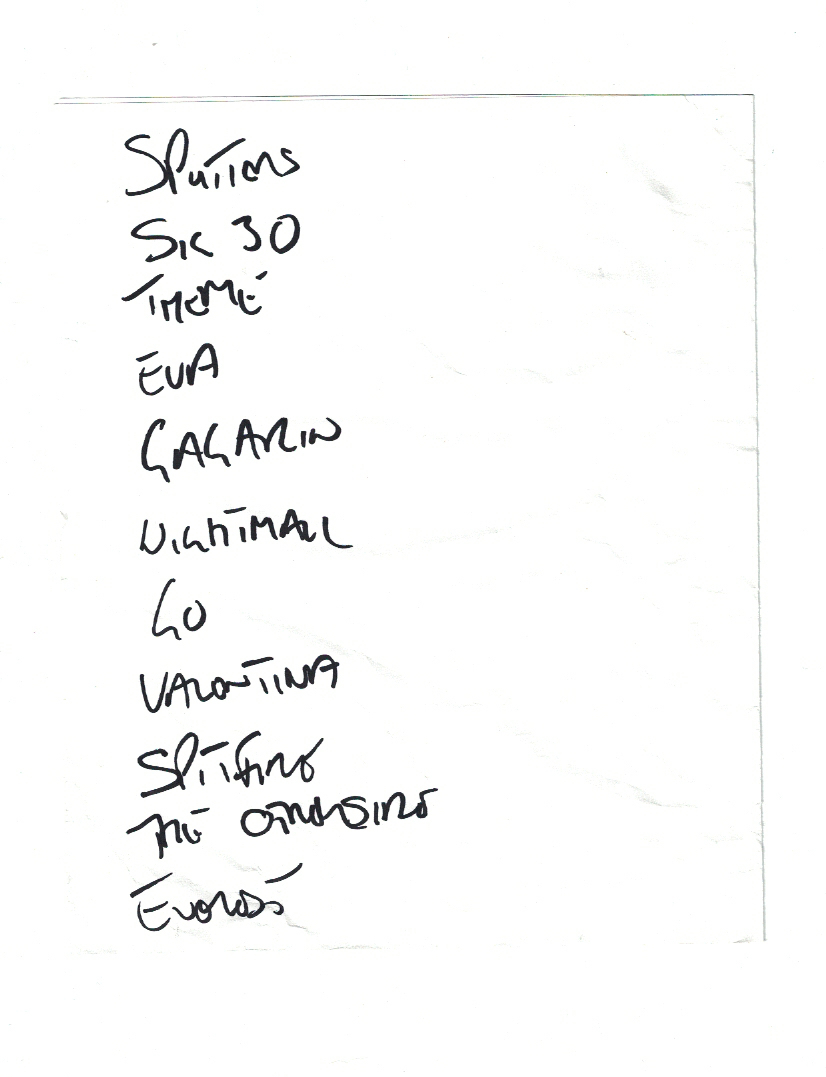 SIG 30
THEME
EVA
GAGARIN
NIGHTMAIL
GO
VALENTINA
SPITFIRE
THE OTHERSIDE
EVEREST